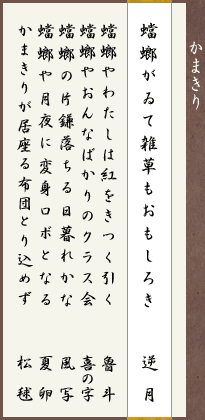 かまきり
蟷螂がゐて雑草もおもしろき 逆月
蟷螂やわたしは紅をきつく引く 魯斗
蟷螂やおんなばかりのクラス会 喜の字
蟷螂の片鎌落ちる日暮れかな 風写
蟷螂や月夜に変身ロボとなる 夏卵
かまきりが居座る布団とり込めず 松毬